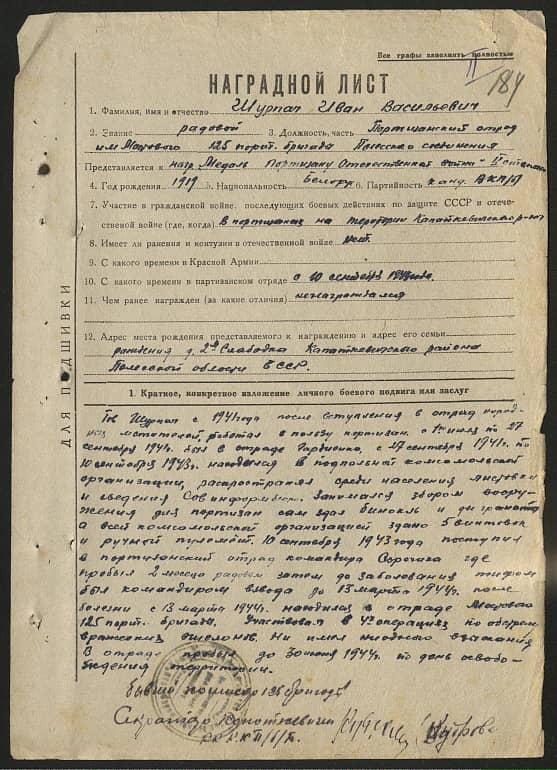 Все графы заполнять полностью
II 184
НАГРАДНОЙ ЛИСТ
1. Фамилия, имя и отчество Шурпач Иван Васильевич
2. Звание рядовой 3. Должность, часть Партизанский отряд
125 парт. бригада Полесского соединения
Представляется к нагр. Медаль Партизану Отечественной войны II степени
4. Год рождения 1919 5. Национальность Белорус 6. Партийность канд. ВКП/б
7. Участие в гражданской войне, последующих боевых действиях по защите СССР и отече-
ственной войне (где, когда) В партизанах на територии Капаткевичского р-на
8. Имеет ли ранения и контузии в отечественной войне нет.
9. С какого времени в Красной Армии
10. С какого времени в партизанском отряде с 10 сентября
11. Чем ранее награжден (за какие отличия) ненаграждался
12. Адрес места рождения представляемого к награждению и адрес его семьи
рождения д. 2ая Слободка Капаткевичского района
Полесской области БССР.
ДЛЯ ПОДШИВКИ
1. Краткое, конкретное изложение личного боевого подвига или заслуг
Тов Шурпач с 1941 года после вступления в отряд народ-
ных мстителей, работал в пользу партизан. с по 27
сентября 1941г. был в отряде с 27 сентября 1941г. по
10 сентября 1943г. находился в подпольной комсомольской
организации, распространял среди населения листовки
и сведения Совинформбюро. Занимался збором воору-
жения для партизан сам здал бинокль и граната
а всей комсомольской организацией здано 5 винтовок
и ручной пулемёт. 10 сентября 1943 года поступил
в партизанский отряд командира где
пробыл 2 месяца рядовым затем до заболевания тифом
был командиром взвода до 13 марта 1944г. после
болезни с 13 марта 1944г. находился в отряде
125 парт. бригады. Участвовал в 4х операциях по обстрел
вражеских эшелонов. Ни имел ниодного взыскания
В отряде пробыл до 30 июня 1944г. по день освобо-
ждения територии.
Бывш комиссар 125 бригады
Секретарь Копаткевичского
РК КП/б/Б.